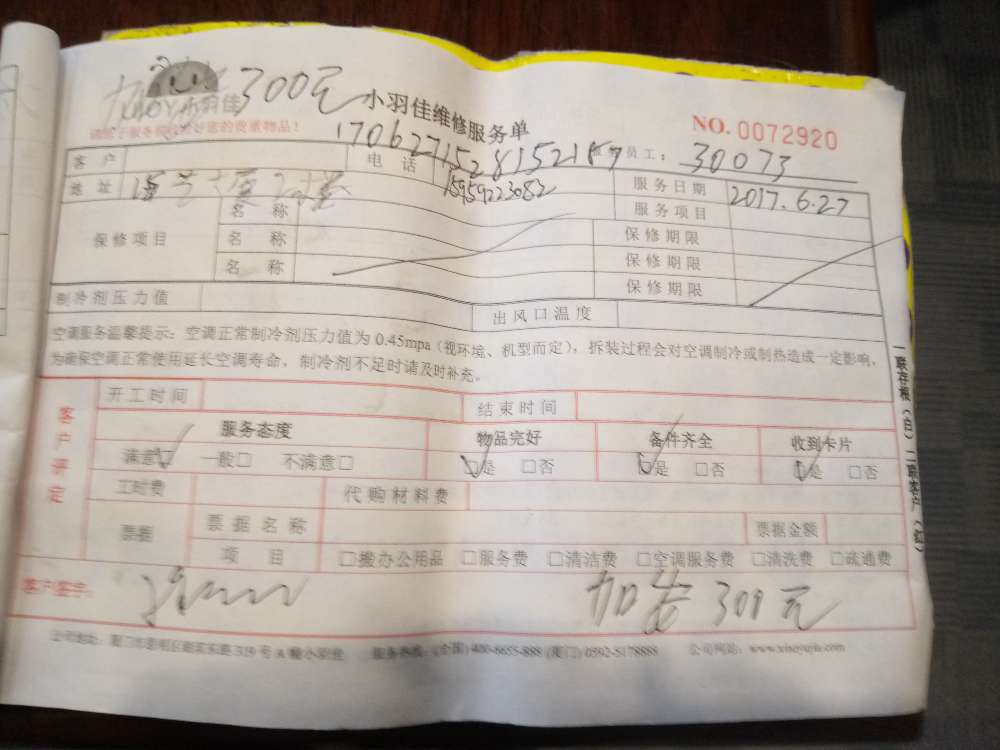 300元
小羽佳维修服务单
NO. 0072920
1706271528152187
服务员工: 30073
客户 电话 15959223082 服务日期 2017.6.27
地址 服务项目
保修项目 名称 保修期限
名称 保修期限
名称 保修期限
制冷剂压力值 出风口温度
空调服务温馨提示: 空调正常制冷剂压力值为 0.45mpa (视环境、机型而定), 拆装过程会对空调制冷或制热造成一定影响,
为确保空调正常使用延长空调寿命, 制冷剂不足时请及时补充。
一联存根(白) 二联客户(红)
客户评定
开工时间 结束时间
服务态度 物品完好 备件齐全 收到卡片
满意☑ 一般□ 不满意□ ☑是 □否 ☑是 □否 ☑是 □否
工时费 代购材料费
票据 票据名称 票据金额
项目 □搬办公用品 □服务费 □清洁费 □空调服务费 □清洗费 □疏通费
客户签字:
300元
服务热线: (全国) 400-6655-888 (厦门) 0592-5178888 公司网站: www.xiaoyujia.com